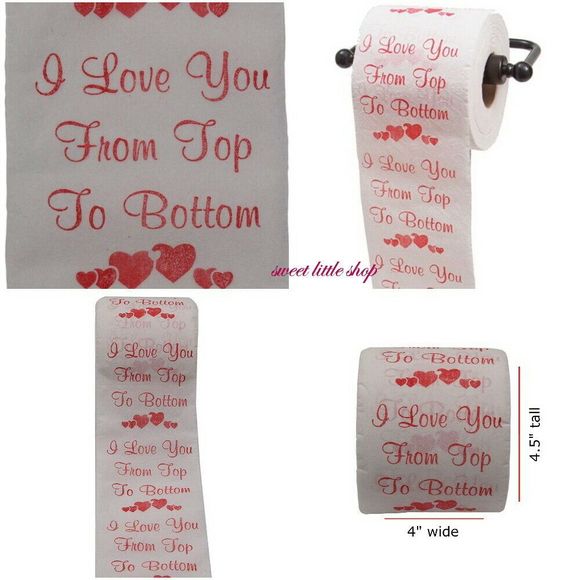 I Love You
From Top
To Bottom
I Love You
From Top
To Bottom
I Love You
From Top
To Bottom
I Love You
sweet little shop
To Bottom
I Love You
From Top
To Bottom
I Love You
From Top
To Bottom
I Love You
From Top
To Bottom
To Bottom
I Love You
From Top
To Bottom
4.5" tall
4" wide